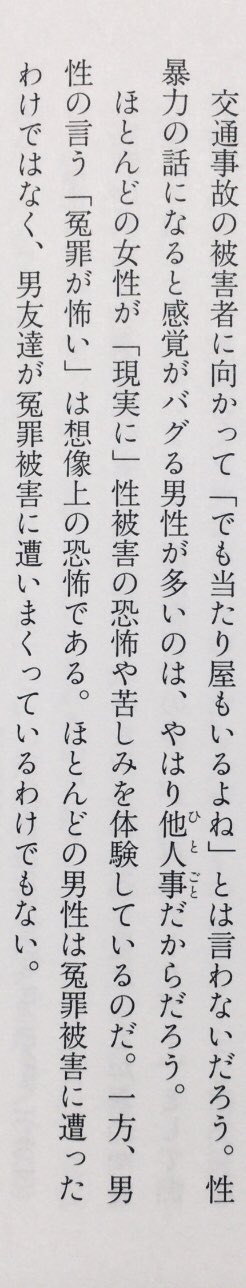 交通事故の被害者に向かって「でも当たり屋もいるよね」とは言わないだろう。性
暴力の話になると感覚がバグる男性が多いのは、やはり他人事だからだろう。
ひとごと
ほとんどの女性が「現実に」性被害の恐怖や苦しみを体験しているのだ。一方、男
性の言う「冤罪が怖い」は想像上の恐怖である。ほとんどの男性は冤罪被害に遭った
わけではなく、男友達が冤罪被害に遭いまくっているわけでもない。